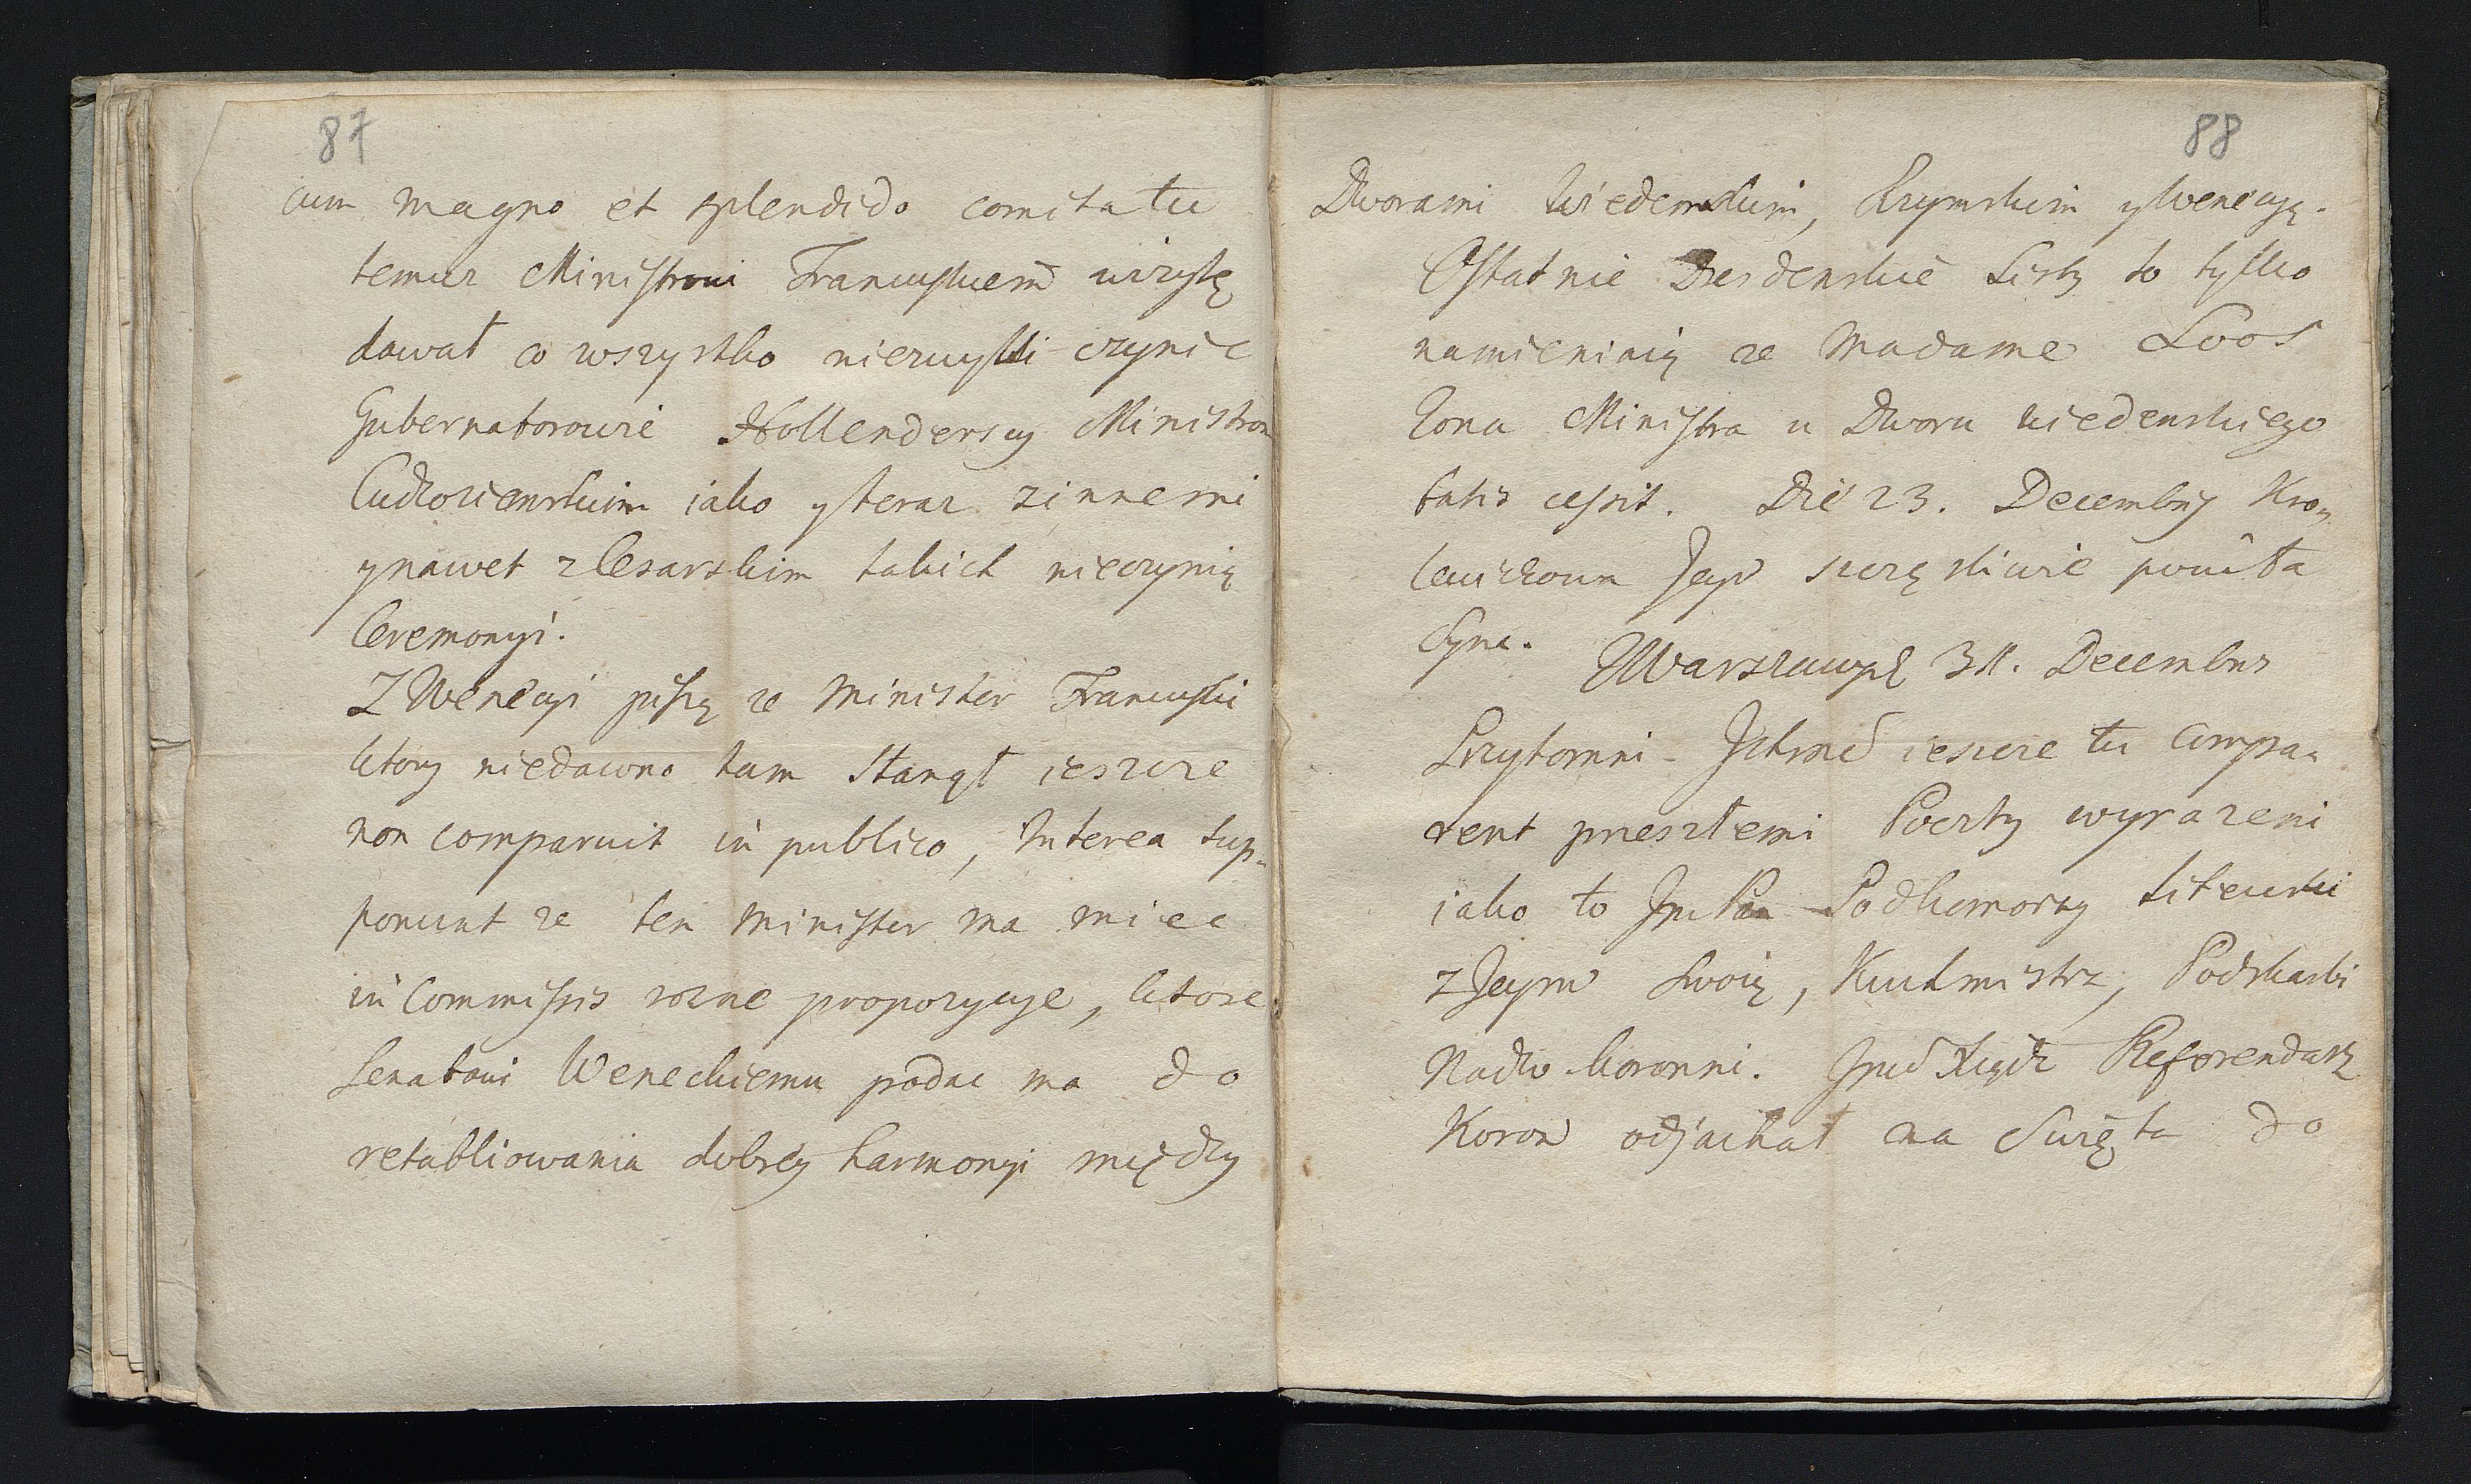 87
cum magno et splendido comitatu
temuz Ministrowi Francuskiem wizytę
dawał co wszystko niezwykli czynic
Gubernatorowie Hollenderscy Ministrom
Cudzoziemskim iako y teraz z innemi
y nawet z Cesarskim takich nieczynią
Ceremonyi.
Z Wenecyi piszą ze Minister Francuski
ktory niedawno tam Stanął ieszcze
non comparuit in publico, Interea sup-
ponunt ze ten Minister ma miec
in Commissis rozne propozycye, ktore
Senatowi Weneckiemu podac ma do
retabliowania dobrey harmonyi między
88
Dworami Wiedenskim, Rzymskim y Wenecyą.
Ostatnie Drezdenskie Listy to tylko
namieniaią ze Madame Loos
Zona Ministra u Dworu Wiedenskiego
fatis cessit. Die 23. Decembris Kro-
lewiczowa Jey szczęsliwie powiła
Syna.
Z Warszawy d 31. Decembris
Przytomni Ichmc ieszcze tu Compa-
rent przeszłemi Poczty wyrazeni
iako to Jm Pan Podkomorzy Litewski
z Jeym Swoią, Kuchmistrz, Podskarbi
Nadw Koronni. Jmc Xiądz Referendarz
Koron odjachał na Swięta do